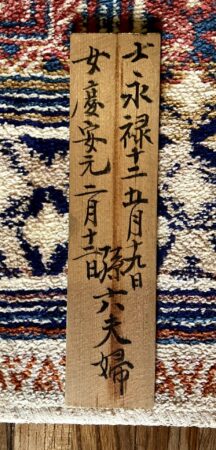 士永禄十二五月十九日
女慶安元二月十二日
孫六夫婦